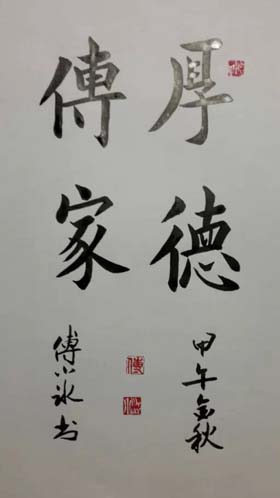 厚德
傳家
甲午金秋
傅小冰书